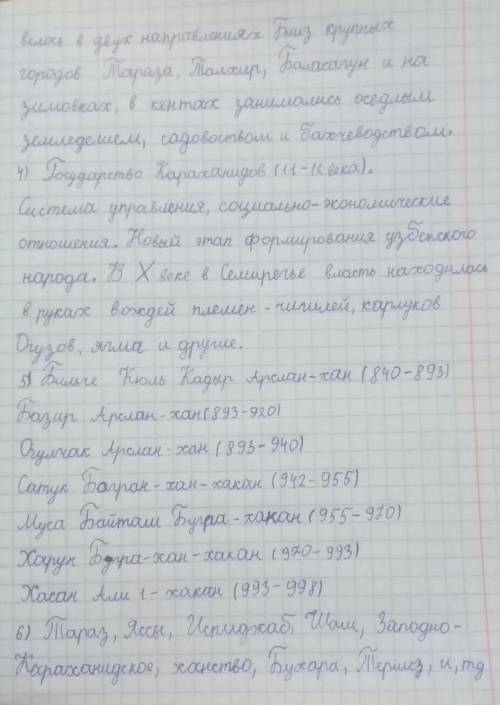 велось в двух направлениях Близ крупных
городов Тараза, Талхир, Баласагун и на
зимовках, в кентах занимались оседлым
земледелием, садовоством и бахчеводством.
4) Государство Караханидов (11-12 века).
Система управления, социально-экономические
отношения. Новый этап формирования узбекского
народа. В X веке в Семиречье власть находилась
в руках вождей племен - чигилей, карлуков
Огузов, ягма и другие.
5) Бильге Кюль Кадыр Арслан-хан (840-893)
Базир Арслан-хан (893-920)
Огулчак Арслан-хан (893-940)
Сатук Богран-хан-хакан (942-955)
Муса Байташ Бугра-хакан (955-970)
Харун Бугра-хан-хакан (970-993)
Хасан Али 1-хакан (993-998)
6) Тараз, Яссы, Испиджаб, Шаш, Западно-
Караханидское, ханство, Бухара, Термез, и, тд